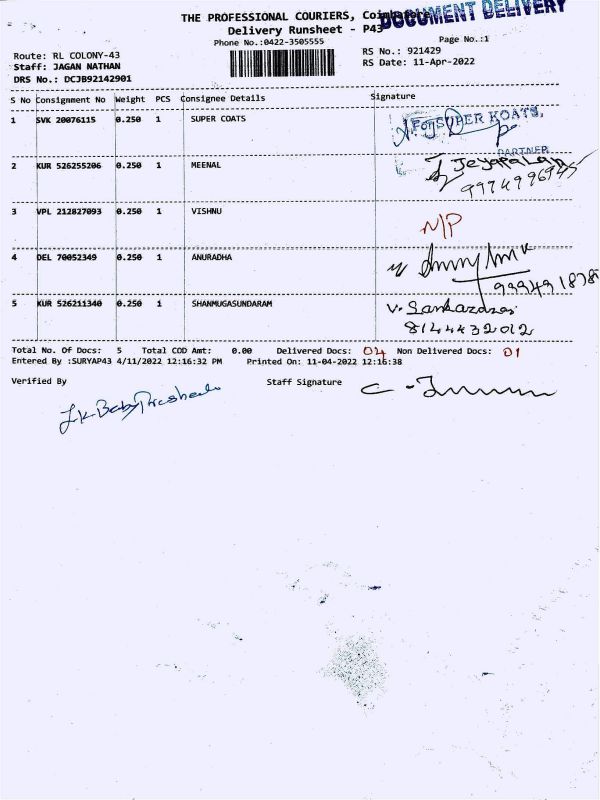 THE PROFESSIONAL COURIERS, Coimbatore
DOCUMENT DELIVERY
Delivery Runsheet - P43
Phone No.:0422-3505555
Page No.:1
Route: RL COLONY-43
RS No.: 921429
Staff: JAGAN NATHAN
RS Date: 11-Apr-2022
DRS No.: DCJB92142901
S No Consignment No Weight PCS Consignee Details Signature
1 SVK 20876115 0.250 1 SUPER COATS
For SUPER KOATS,
PARTNER
2 KUR 526255206 0.250 1 MEENAL
Jeyapalan
9974996945
3 VPL 212827093 0.250 1 VISHNU N/P
4 DEL 70052349 0.250 1 ANURADHA
5 KUR 526211340 0.250 1 SHANMUGASUNDARAM
8144432012
Total No. Of Docs: 5 Total COD Amt: 0.00 Delivered Docs: 04 Non Delivered Docs: 01
Entered By :SURYAP43 4/11/2022 12:16:32 PM Printed On: 11-04-2022 12:16:38
Verified By Staff Signature